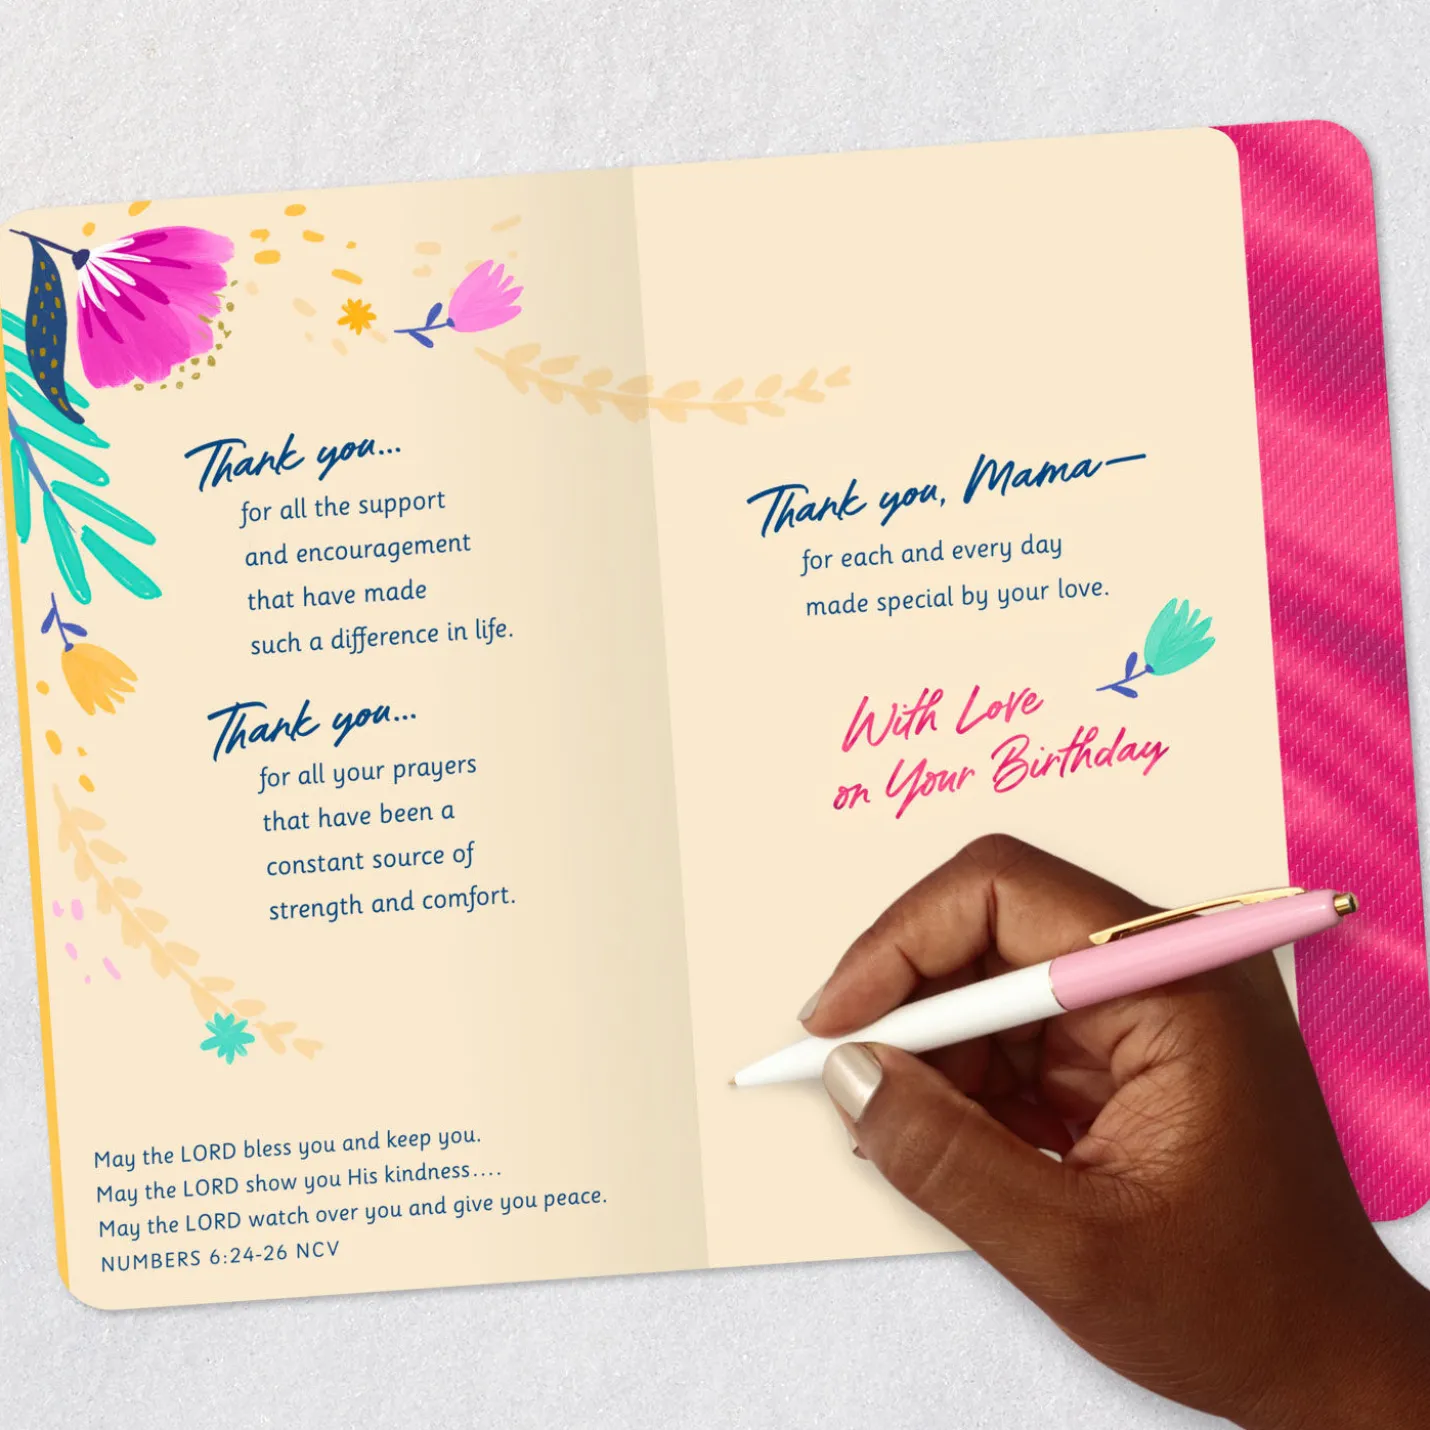 Thank you...
for all the support
and encouragement
that have made
such a difference in life.
Thank you...
for all your prayers
that have been a
constant source of
strength and comfort.
May the LORD bless you and keep you.
May the LORD show you His kindness....
May the LORD watch over you and give you peace.
NUMBERS 6:24-26 NCV
Thank you, Mama—
for each and every day
made special by your love.
With Love
on Your Birthday